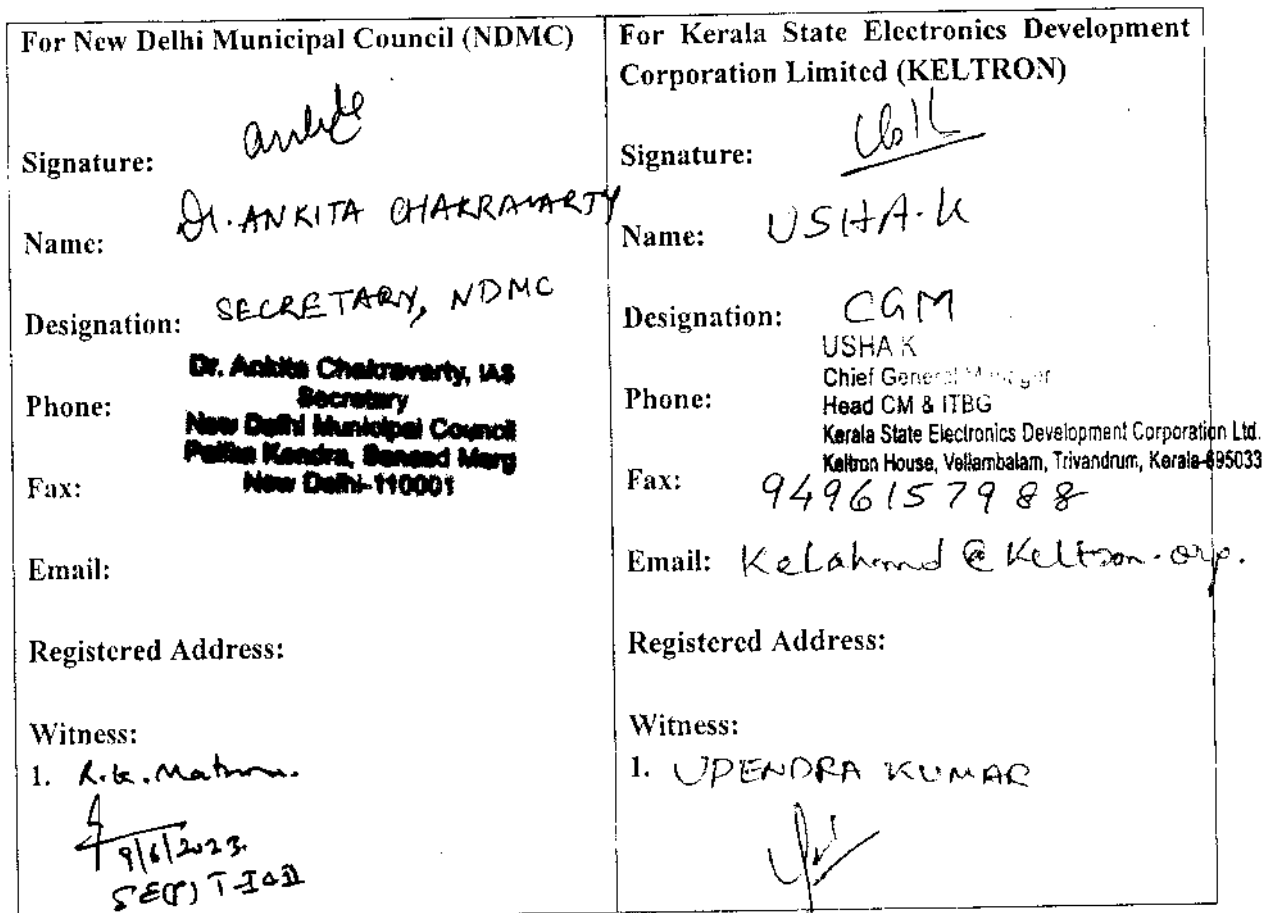 For New Delhi Municipal Council (NDMC)
Signature:
Name: Dr. ANKITA CHAKRAVARTY
Designation: SECRETARY, NDMC
Dr. Ankita Chakravarty, IAS
Secretary
Phone:
New Delhi Municipal Council
Palika Kendra, Sansad Marg
New Delhi-110001
Fax:
Email:
Registered Address:
Witness:
1. R.K.
9/6/2023.
For Kerala State Electronics Development
Corporation Limited (KELTRON)
Signature:
Name: USHA.K
Designation: CGM
USHA K
Chief General Manager
Phone:
Head CM & ITBG
Kerala State Electronics Development Corporation Ltd.
Keltron House, Vellambalam, Trivandrum, Kerala-695033
Fax: 9496157988
Email:
Registered Address:
Witness:
1. UPENDRA KUMAR